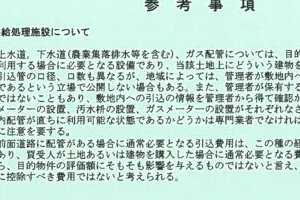 参考事項
給処理施設について
上水道、下水道(農業集落排水等を含む)、ガス配管については、目的
利用する場合に必要となる設備であり、当該土地上にどういう建物を
引込管の口径、口数も異なるが、地域によっては、管理者が敷地内
であるという立場で公開しない場合もある。また、管理者が保有する
ではないこともあり、敷地内への引込の情報を管理者から得て確認か
メーターの設置、汚水枡の設置、ガスメーターの設置がそれぞれなさ
内配管が直ちに利用可能な状態であるかどうかは専門業者でなければ
に注意を要する。
前面道路に配管がある場合に通常必要となる引込費用は、この種の経
あり、買受人が土地あるいは建物を購入した場合に通常必要となる費
ら、目的物件の評価額にそもそも影響を与えるものではないと言え、
に控除すべき費用ではないと考えられる。